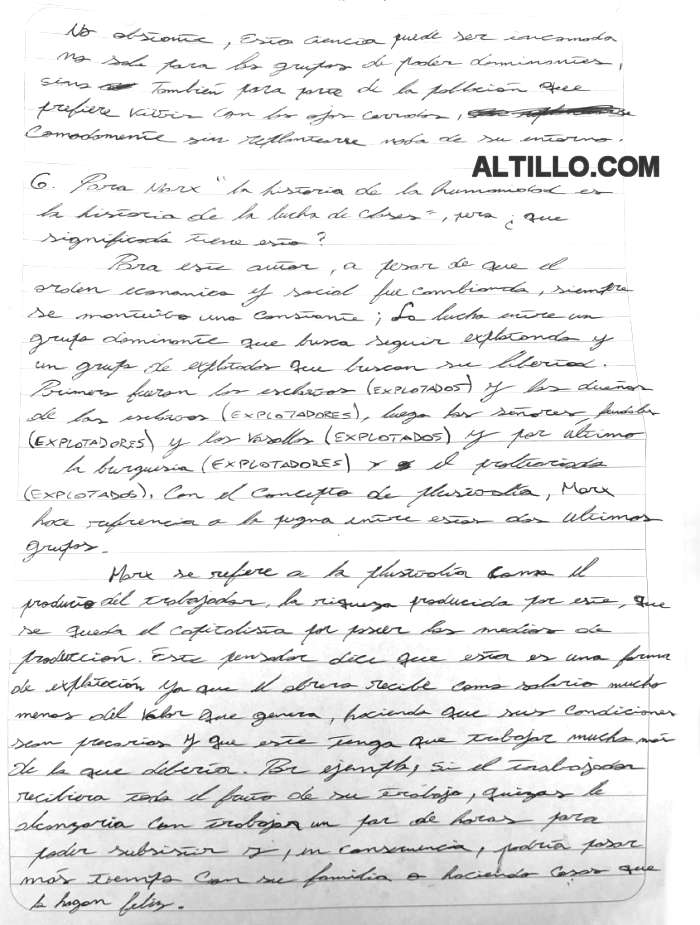 No obstante, esta ciencia puede ser incomoda
no solo para los grupos de poder dominantes,
sino también para parte de la población que
prefiere vivir con los ojos cerrados,
comodamente sin replantearse nada de su entorno.
ALTILLO.COM
6. Para Marx "la historia de la humanidad es
la historia de la lucha de clases", pero ¿que
significado tiene esto?
Para este autor, a pesar de que el
orden economico y social fue cambiando, siempre
se mantuvo una constante; La lucha entre un
grupo dominante que busca seguir explotando y
un grupo de explotados que buscan su libertad.
Primero fueron los esclavos (EXPLOTADOS) y los dueños
de los esclavos (EXPLOTADORES), luego los señores feudales
(EXPLOTADORES) y los vasallos (EXPLOTADOS) y por ultimo
la burguesia (EXPLOTADORES) y el proletariado
(EXPLOTADOS). Con el concepto de plusvalía, Marx
hace referencia a la pugna entre estos dos ultimos
grupos.
Marx se refiere a la plusvalía como el
producto del trabajador, la riqueza producida por este, que
se queda el capitalista por poseer los medios de
producción. Este pensador dice que esta es una forma
de explotación ya que el obrero recibe como salario mucho
menos del valor que genera, haciendo que sus condiciones
sean precarias y que este tenga que trabajar mucho más
de lo que debería. Por ejemplo, si el trabajador
recibiera todo el fruto de su trabajo, quizas le
alcanzaria con trabajar un par de horas para
poder subsistir y, en consecuencia, podría pasar
más tiempo con su familia o haciendo cosas que
lo hagan feliz.